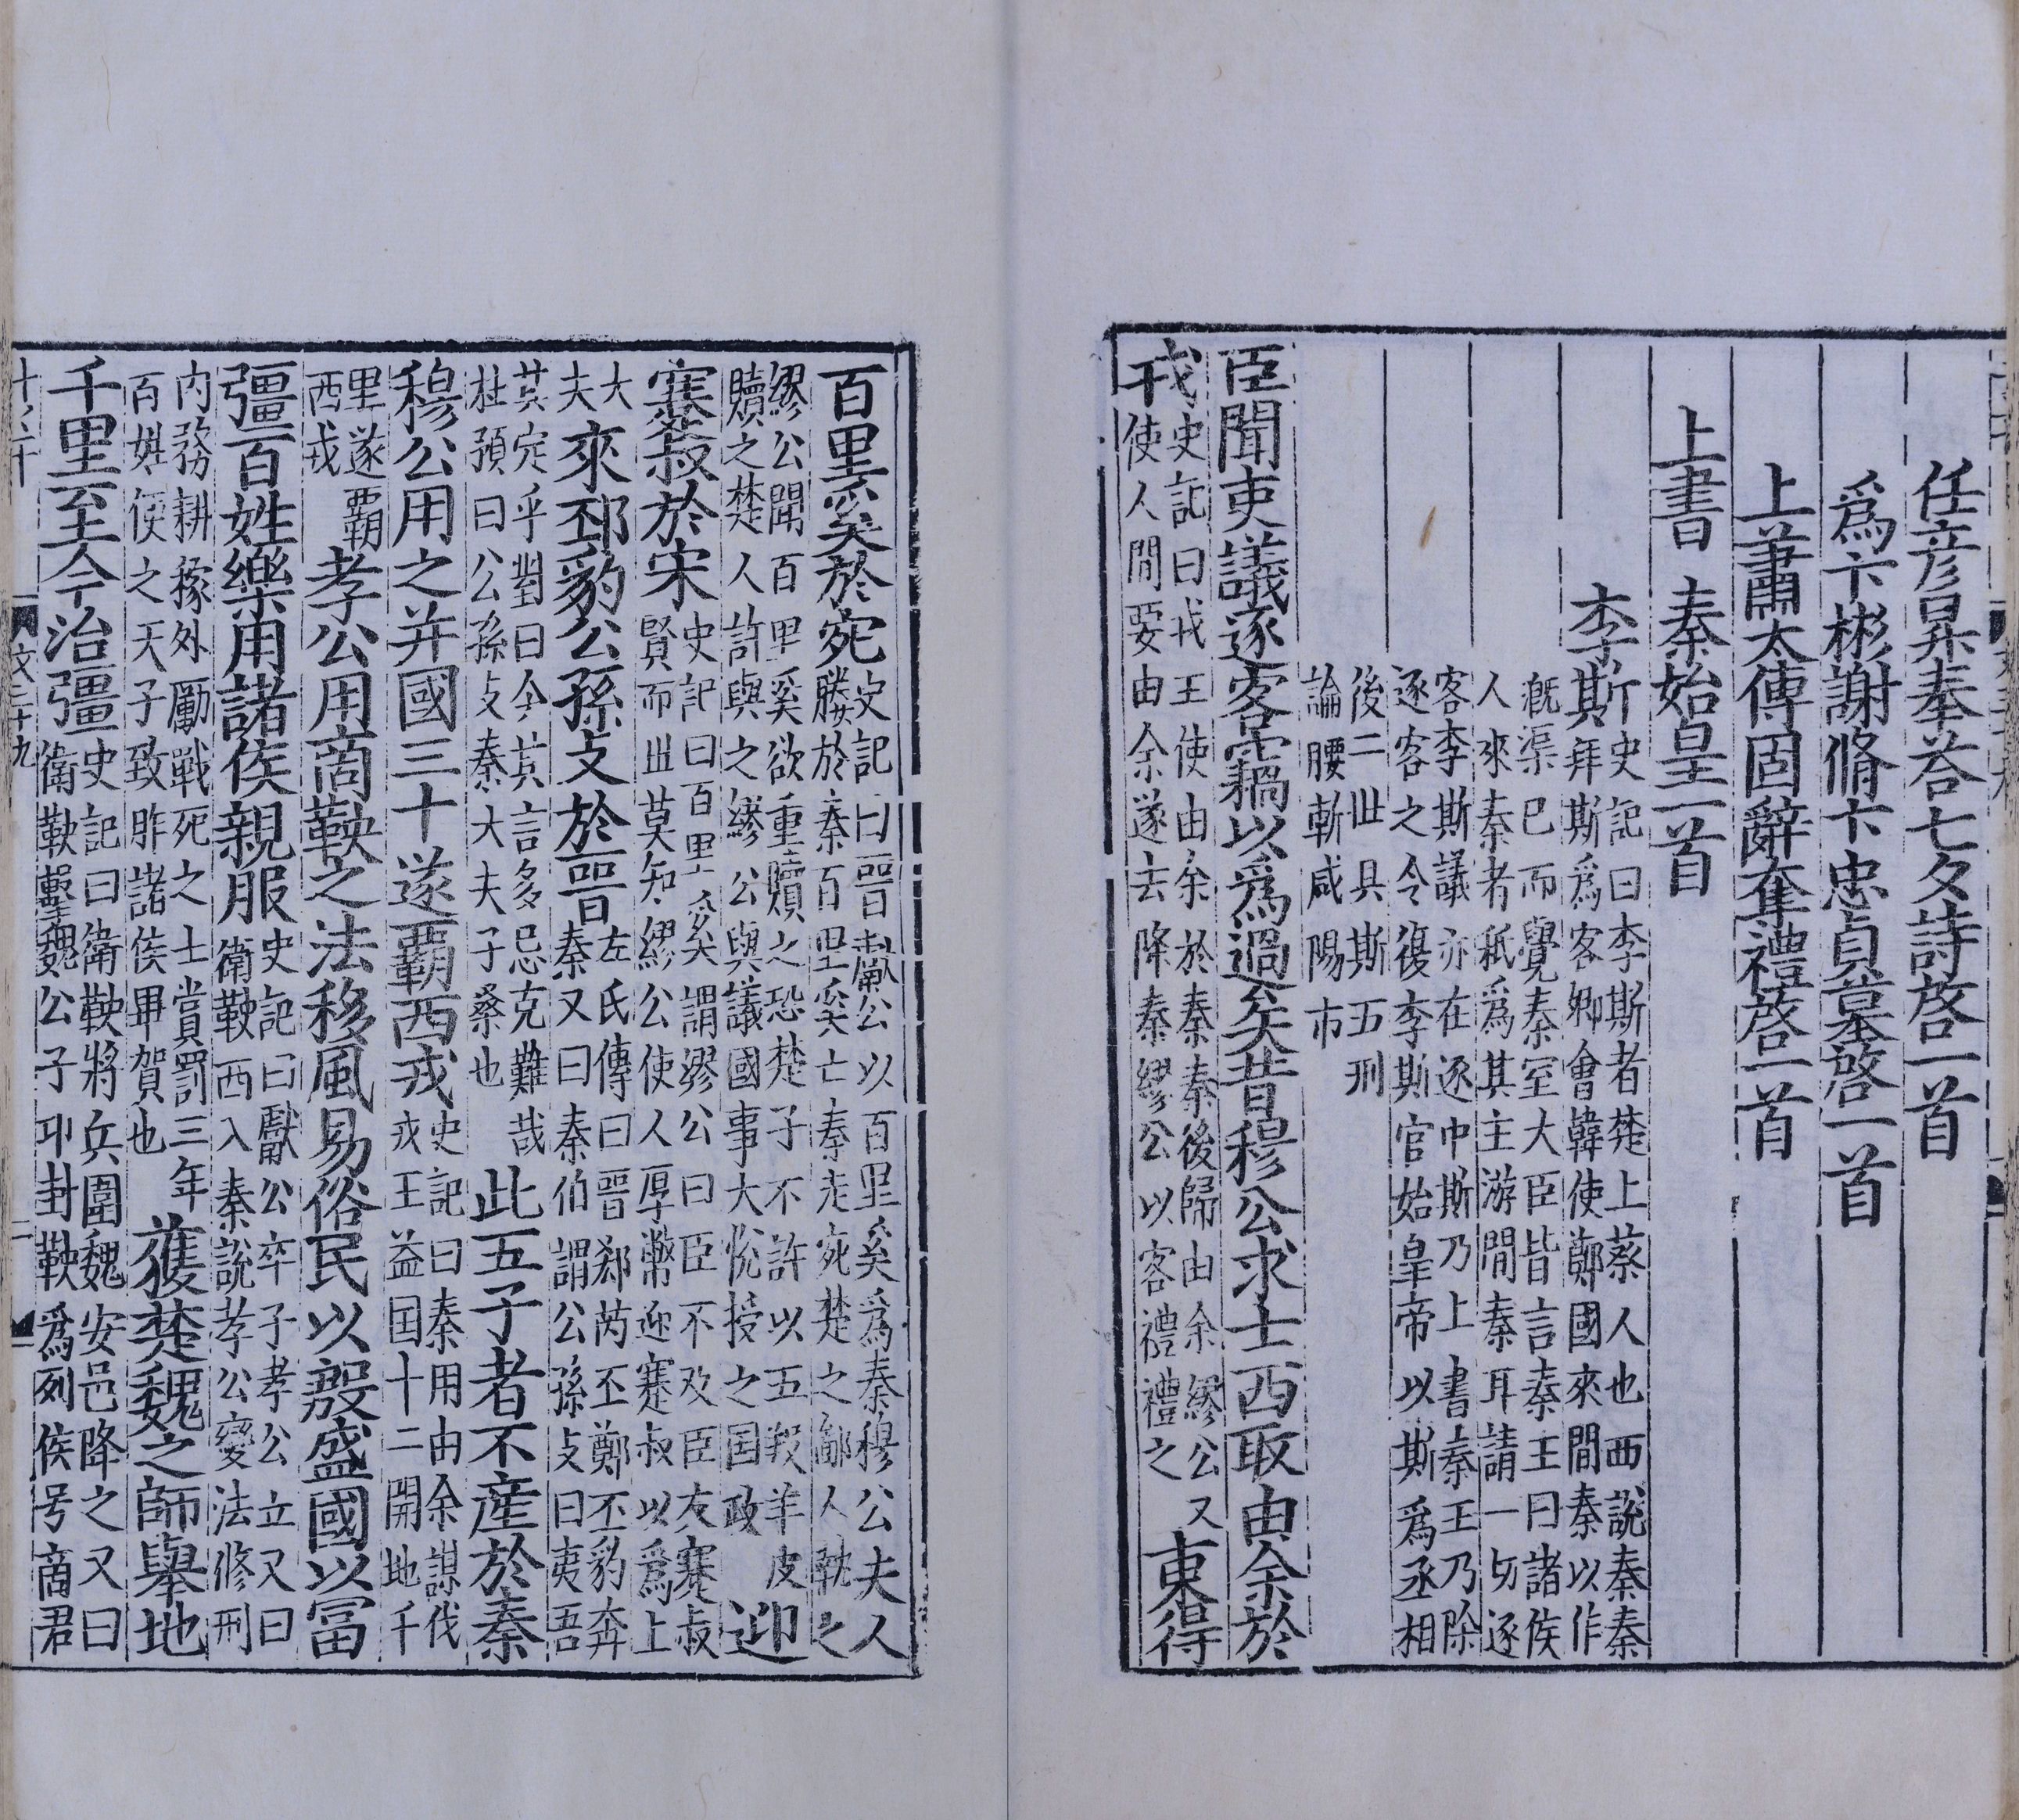 任彦昇奉荅七夕詩啓一首
爲卞彬謝脩卞忠貞墓啓一首
上蕭太傅固辭奪禮啓一首
上書秦始皇一首
李斯
史記曰李斯者楚上蔡人也西說秦秦
拜斯爲客卿會韓使鄭國來間秦以作
漑渠已而覺秦室大臣皆言秦王曰諸侯
人來秦者秖爲其主游間秦耳請一切逐
客李斯議亦在逐中斯乃上書秦王乃除
逐客之令復李斯官始皇帝以斯爲丞相
後二丗具斯五刑
論腰斬咸陽市
臣聞吏議逐客竊以爲過矣昔穆公求士西取由余於
戎
史記曰戎王使由余於秦秦後歸由余繆公又
使人間要由余遂去降秦繆公以客禮禮之
東得
百里奚於宛
史記曰晉獻公以百里奚爲秦穆公夫人
媵於秦百里奚亡秦走宛楚之鄙人執之
繆公聞百里奚欲重贖之恐楚子不許以五羖羊皮
贖之楚人許與之繆公與議國事大悅授之国政
迎
蹇叔於宋
史記曰百里奚謂繆公曰臣不及臣友蹇叔
賢而丗莫知繆公使人厚幣迎蹇叔以爲上
大
夫
來邳豹公孫支於晉
左氏傳曰晉郄芮丕鄭丕豹奔
秦又曰秦伯謂公孫攴曰夷吾
其定乎對曰今其言多忌克難哉
杜預曰公孫攴秦大夫子桑也
此五子者不産於秦
穆公用之并國三十遂覇西戎
史記曰秦用由余謀伐
戎王益国十二開地千
里遂覇
西戎
孝公用商鞅之法移風易俗民以殷盛國以富
彊百姓樂用諸侯親服
史記曰獻公卒子孝公立又曰
衛鞅西入秦說孝公變法修刑
内務耕稼外勵戰死之士賞罰三年
百姓便之天子致胙諸侯畢賀也
獲楚魏之師舉地
千里至今治彊
史記曰衛鞅將兵圍魏安邑降之又曰
衛鞅擊魏公子卬封鞅爲列侯号商君
文三十九
二